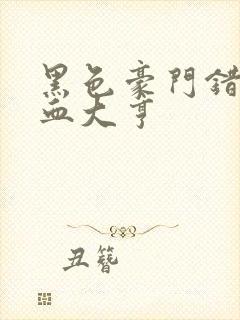 黑色豪門錯
血大亨
丑簪